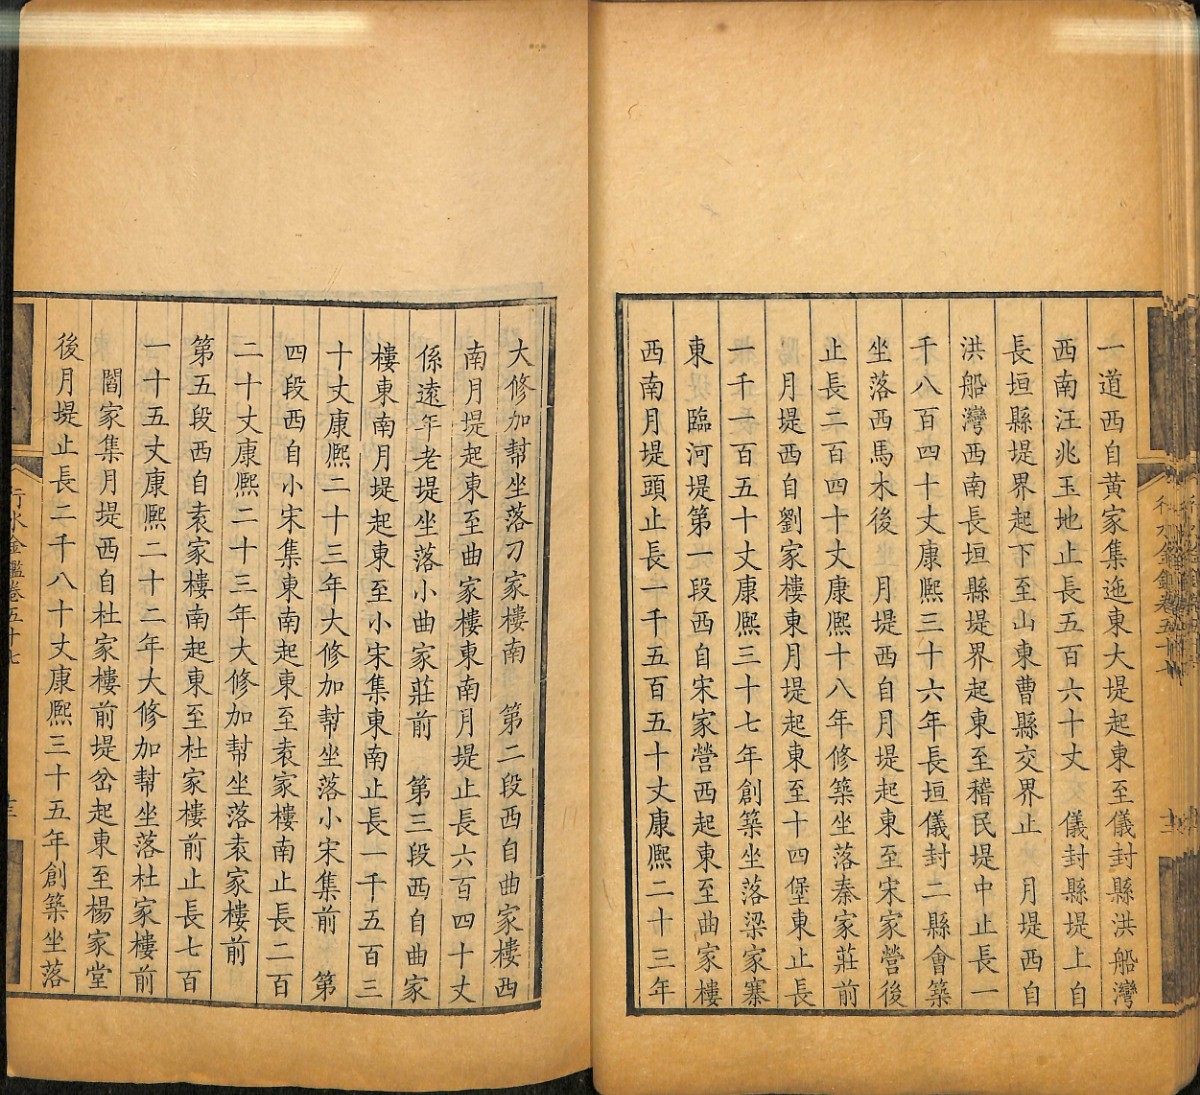 一道西自黄家集迤東大堤起東至儀封縣洪船灣
西南汪兆玉地止長五百六十丈　儀封縣堤上自
長垣縣堤界起下至山東曹縣交界止　月堤西自
洪船灣西南長垣縣堤界起東至稽民堤中止長一
千八百四十丈康熙三十六年長垣儀封二縣會築
坐落西馬木後　月堤西自月堤起東至宋家營後
止長二百四十丈康熙十八年修築坐落秦家莊前
月堤西自劉家樓東月堤起東至十四堡東止長
一千一百五十丈康熙三十七年創築坐落梁家寨
東　臨河堤第一段西自宋家營西起東至曲家樓
西南月堤頭止長一千五百五十丈康熙二十三年
大修加幫坐落刁家樓南　第二段西自曲家樓西
南月堤起東至曲家樓東南月堤止長六百四十丈
係遠年老堤坐落小曲家莊前　第三段西自曲家
樓東南月堤起東至小宋集東南止長一千五百三
十丈康熙二十三年大修加幫坐落小宋集前　第
四段西自小宋集東南起東至袁家樓南止長二百
二十丈康熙二十三年大修加幫坐落袁家樓前
第五段西自袁家樓南起東至杜家樓前止長七百
一十五丈康熙二十二年大修加幫坐落杜家樓前
閻家集月堤西自杜家樓前堤岔起東至楊家堂
後月堤止長二千八十丈康熙三十五年創築坐落
行水金鑑卷五十七